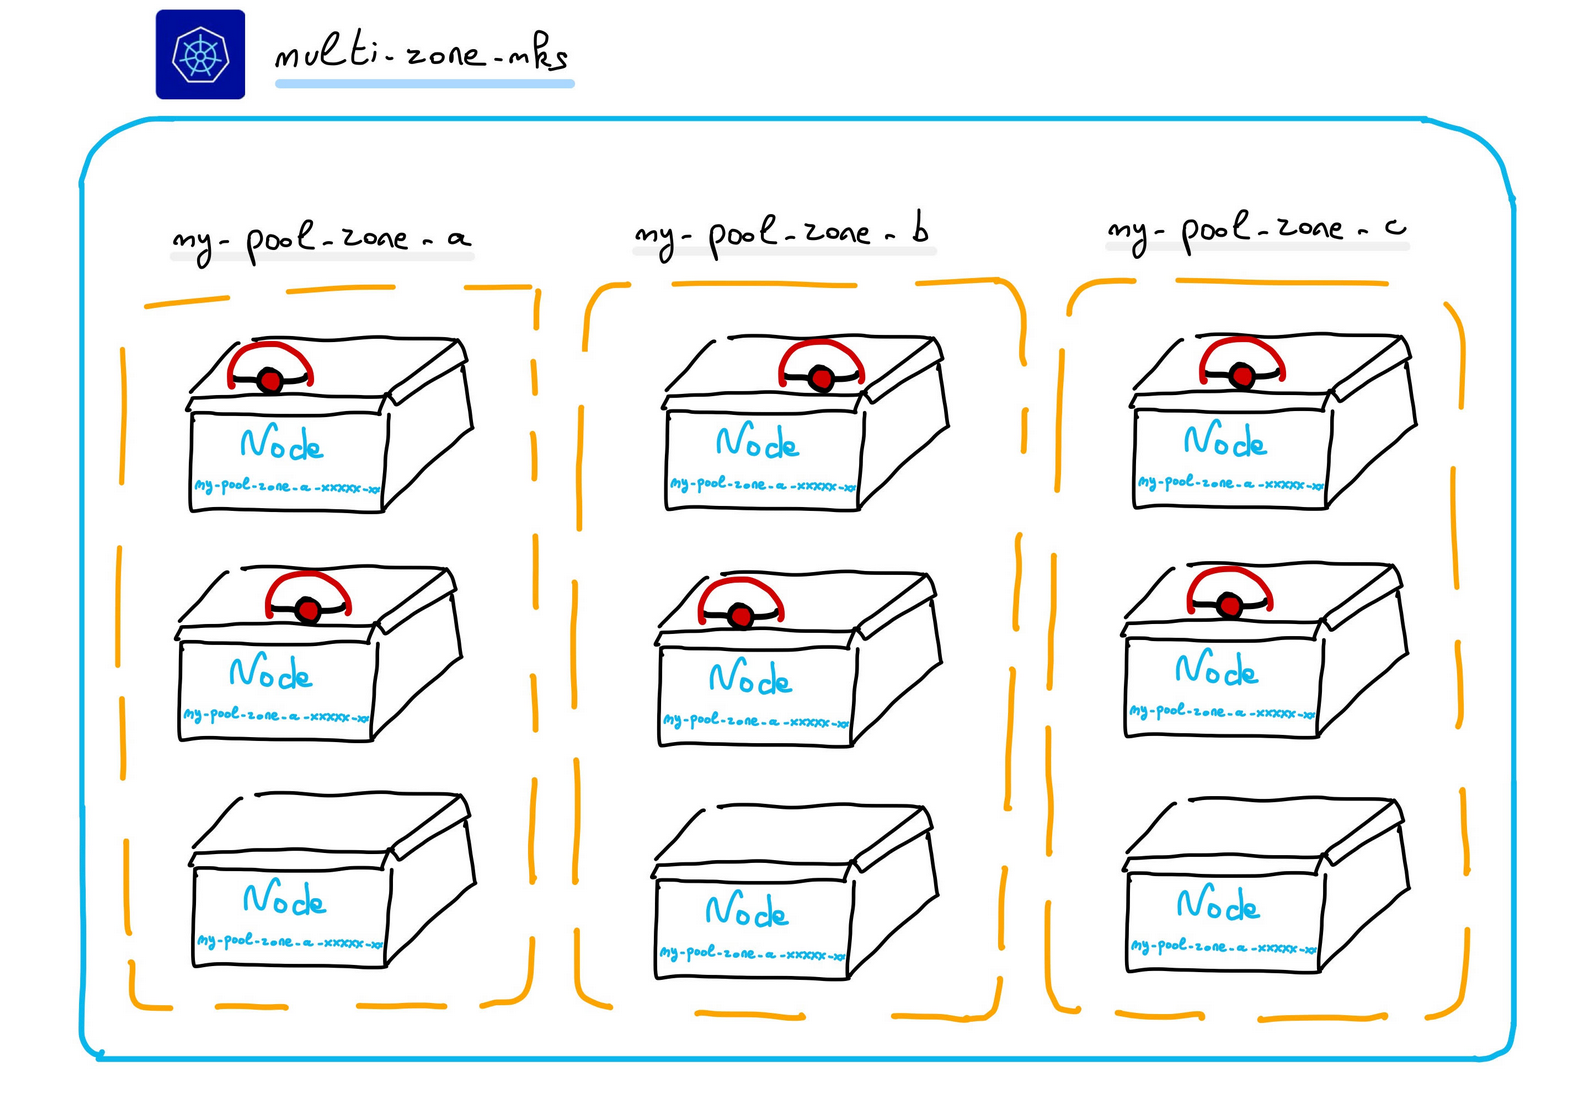 multi-zone-mks
my-pool-zone-a
my-pool-zone-b
my-pool-zone-c
Node
my-pool-zone-a-xxxxx-xx
Node
my-pool-zone-a-xxxxx-xx
Node
my-pool-zone-a-xxxxx-xx
Node
my-pool-zone-a-xxxxx-xx
Node
my-pool-zone-a-xxxxx-xx
Node
my-pool-zone-a-xxxxx-xx
Node
my-pool-zone-a-xxxxx-xx
Node
my-pool-zone-a-xxxxx-xx
Node
my-pool-zone-a-xxxxx-xx